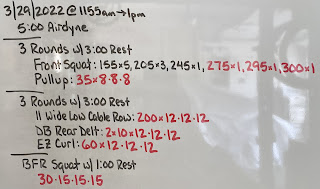 3/29/2022 @ 1155am → 1pm
5:00 Airdyne
3 Rounds w/ 3:00 Rest
Front Squat: 155x5, 205x3, 245x1, 275x1, 295x1, 300x1
Pullup: 35x8·8·8
3 Rounds w/ 3:00 Rest
11 Wide Low Cable Row: 200x12·12·12
DB Rear Delt: 2x10x12·12·12
EZ Curl: 60x12·12·12
BFR Squat w/ 1:00 Rest
30·15·15·15